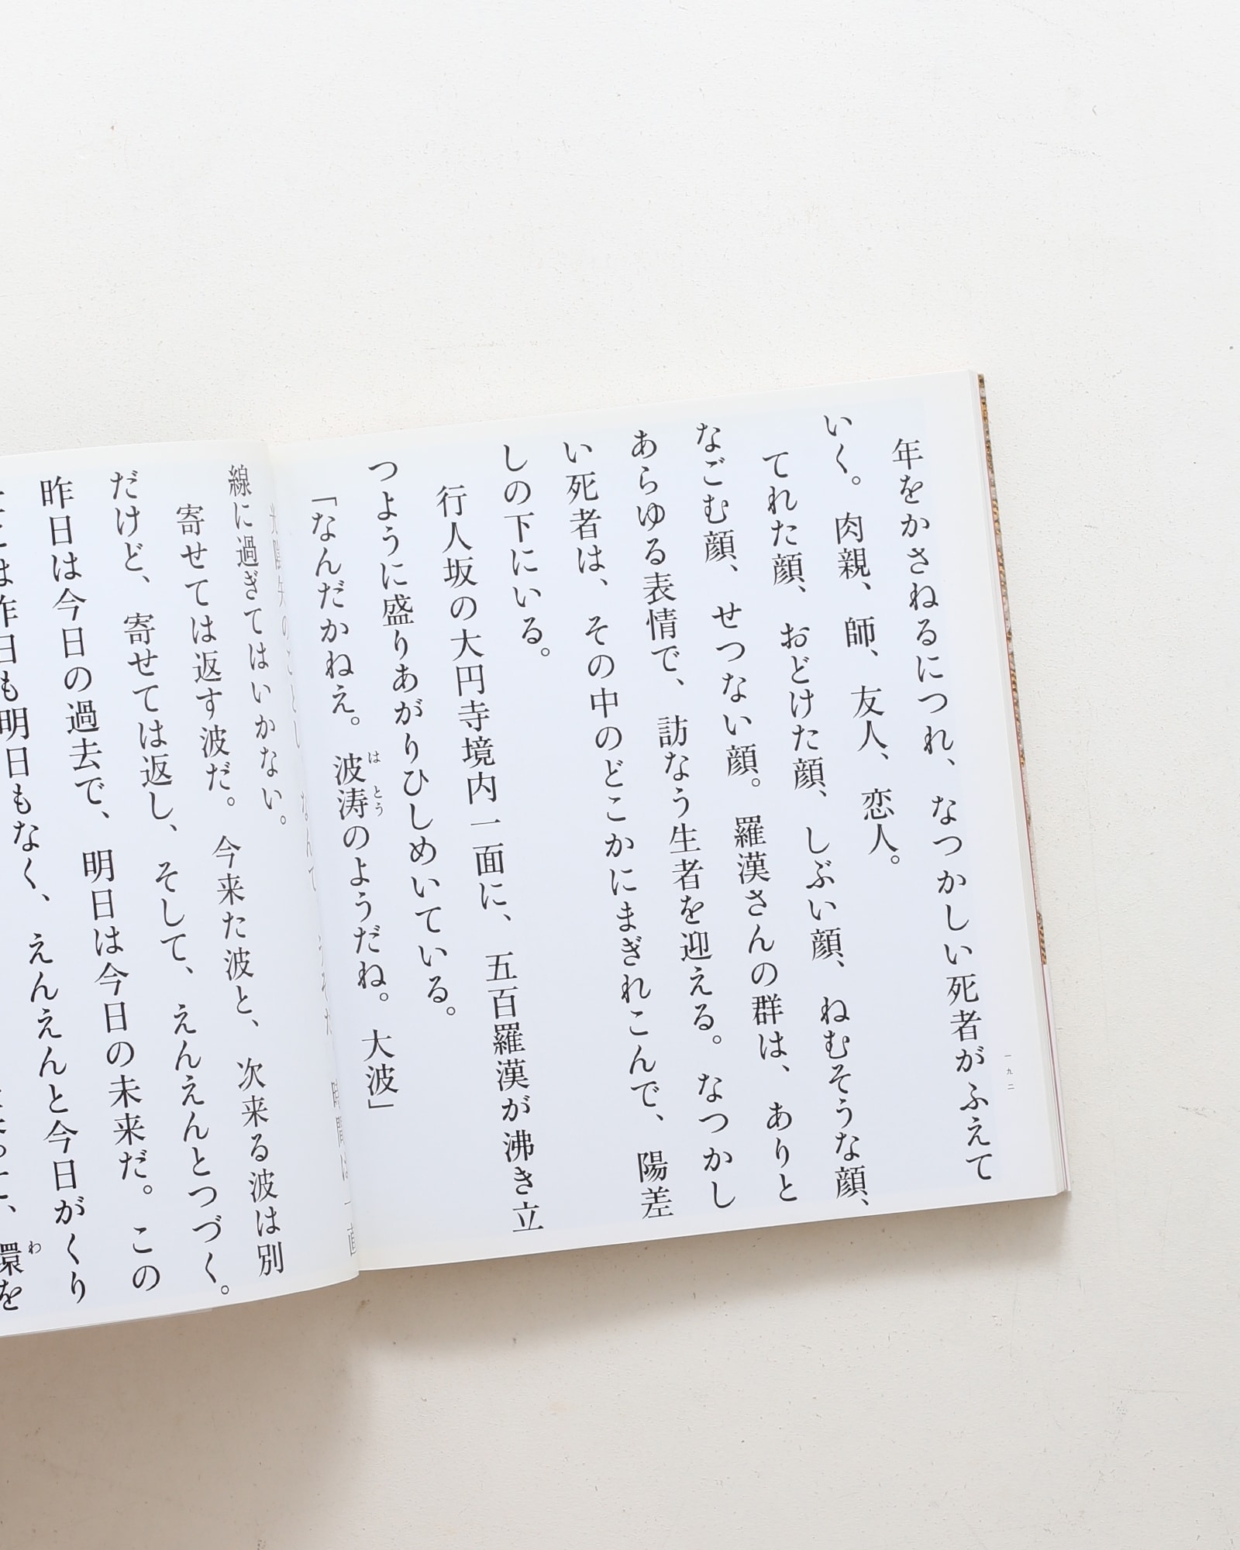 年をかさねるにつれ、なつかしい死者がふえて
いく。肉親、師、友人、恋人。
てれた顔、おどけた顔、しぶい顔、ねむそうな顔、
なごむ顔、せつない顔。羅漢さんの群は、ありと
あらゆる表情で、訪なう生者を迎える。なつかし
い死者は、その中のどこかにまぎれこんで、陽差
しの下にいる。
行人坂の大円寺境内一面に、五百羅漢が沸き立
つように盛りあがりひしめいている。
「なんだかねえ。波涛のようだね。大波」
はとう
一九二
時間は一直
線に過ぎてはいかない。
寄せては返す波だ。今来た波と、次来る波は別
だけど、寄せては返し、そして、えんえんとつづく。
昨日は今日の過去で、明日は今日の未来だ。この
は昨日も明日もなく、えんえんと今日がくり
環を
わ